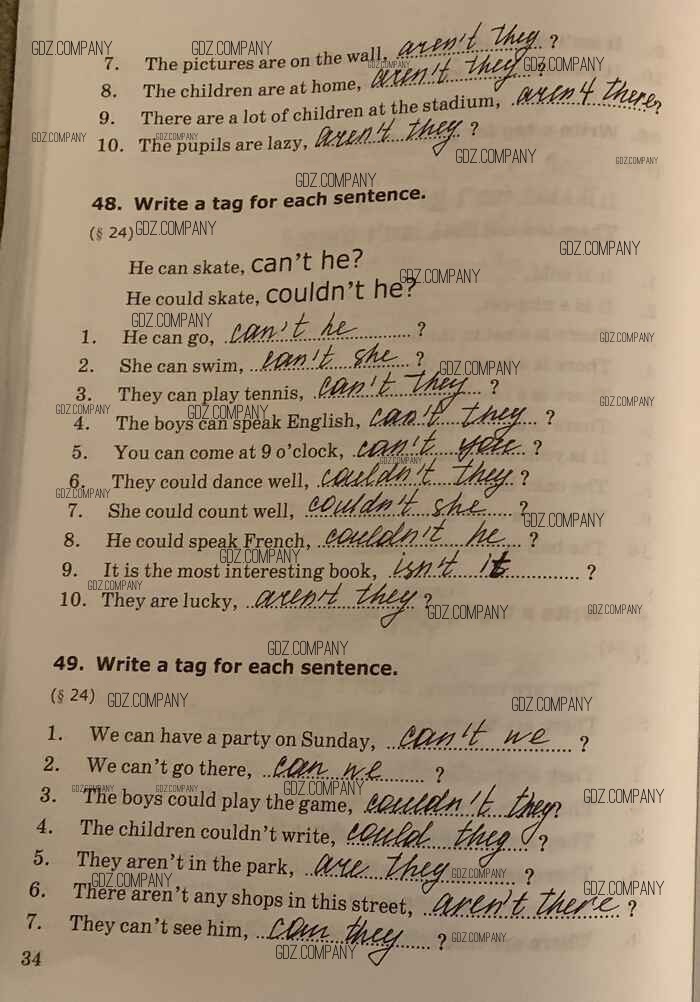 GDZ.COMPANY GDZ.COMPANY
7. The pictures are on the wall, aren't they ?
GDZ.COMPANY GDZ.COMPANY
8. The children are at home, aren't they ?
9. There are a lot of children at the stadium, aren't there ?
GDZ.COMPANY GDZ.COMPANY
10. The pupils are lazy, aren't they ?
GDZ.COMPANY GDZ.COMPANY
GDZ.COMPANY
48. Write a tag for each sentence.
(§ 24) GDZ.COMPANY
GDZ.COMPANY
He can skate, can't he?
GDZ.COMPANY
He could skate, couldn't he?
GDZ.COMPANY
1. He can go, can't he ?
GDZ.COMPANY
2. She can swim, can't she ?
GDZ.COMPANY
3. They can play tennis, can't they ?
GDZ.COMPANY GDZ.COMPANY GDZ.COMPANY
4. The boys can speak English, can't they ?
5. You can come at 9 o'clock, can't you ?
GDZ.COMPANY
6. They could dance well, couldn't they ?
GDZ.COMPANY
7. She could count well, couldn't she ?
GDZ.COMPANY
8. He could speak French, couldn't he ?
GDZ.COMPANY
9. It is the most interesting book, isn't it ?
GDZ.COMPANY
10. They are lucky, aren't they ?
GDZ.COMPANY GDZ.COMPANY
GDZ.COMPANY
49. Write a tag for each sentence.
(§ 24) GDZ.COMPANY GDZ.COMPANY
1. We can have a party on Sunday, can't we ?
2. We can't go there, can we ?
GDZ.COMPANY GDZ.COMPANY GDZ.COMPANY GDZ.COMPANY
3. The boys could play the game, couldn't they?
4. The children couldn't write, could they ?
5. They aren't in the park, are they ?
GDZ.COMPANY GDZ.COMPANY GDZ.COMPANY
6. There aren't any shops in this street, aren't there ?
7. They can't see him, can they ?
GDZ.COMPANY GDZ.COMPANY
34